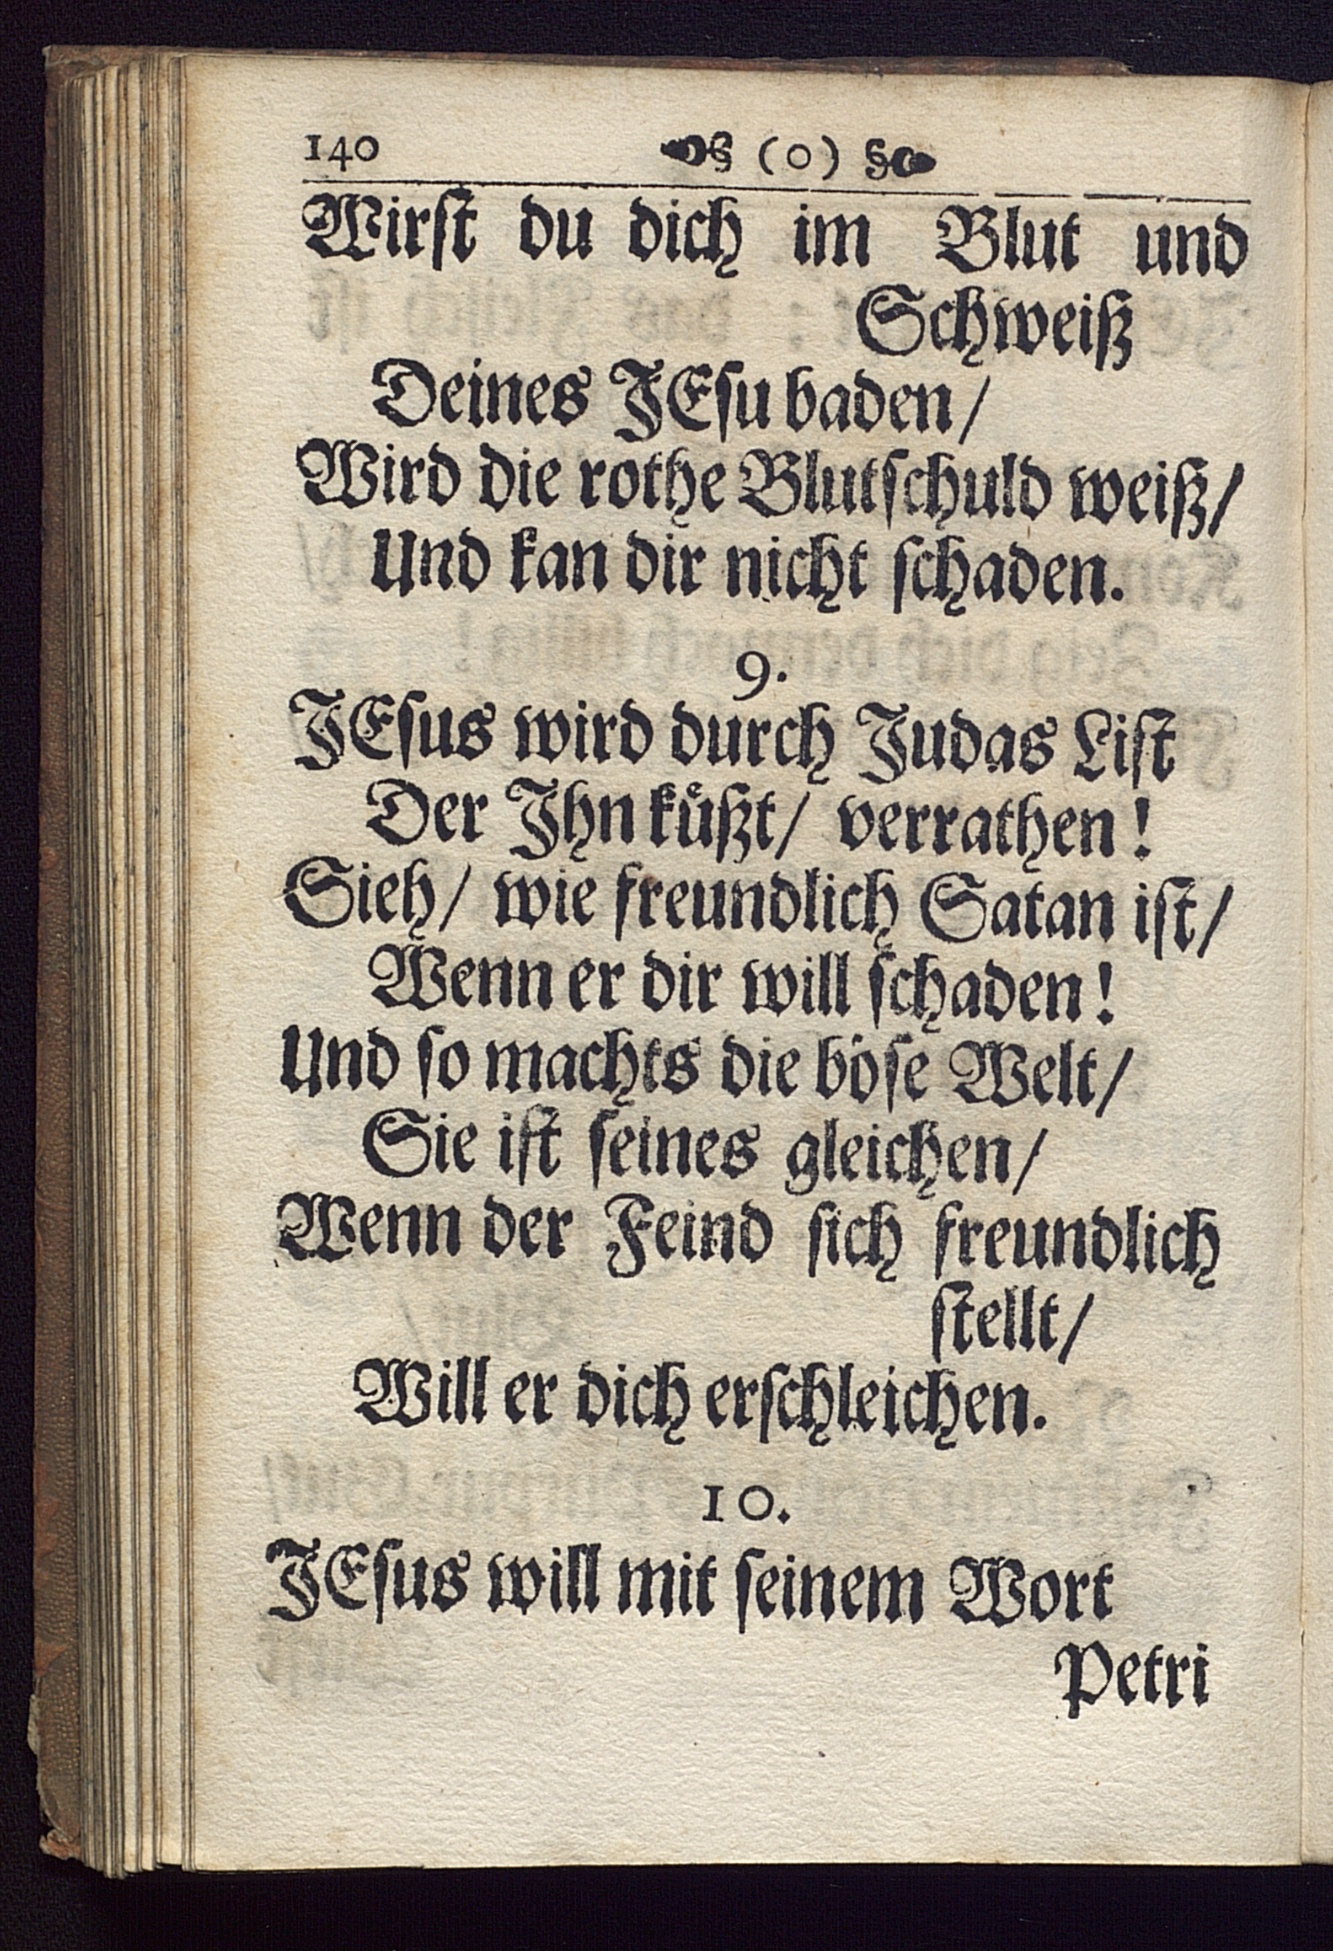 140 (0)
Wirst du dich im Blut und
Schweiß
Deines JEsu baden/
Wird die rothe Blutschuld weiß/
Und kan dir nicht schaden.
9.
JEsus wird durch Judas List
Der Ihn küßt/ verrathen!
Sieh/ wie freundlich Satan ist/
Wenn er dir will schaden!
Und so machts die böse Welt/
Sie ist seines gleichen/
Wenn der Feind sich freundlich
stellt/
Will er dich erschleichen.
10.
JEsus will mit seinem Wort
Petri